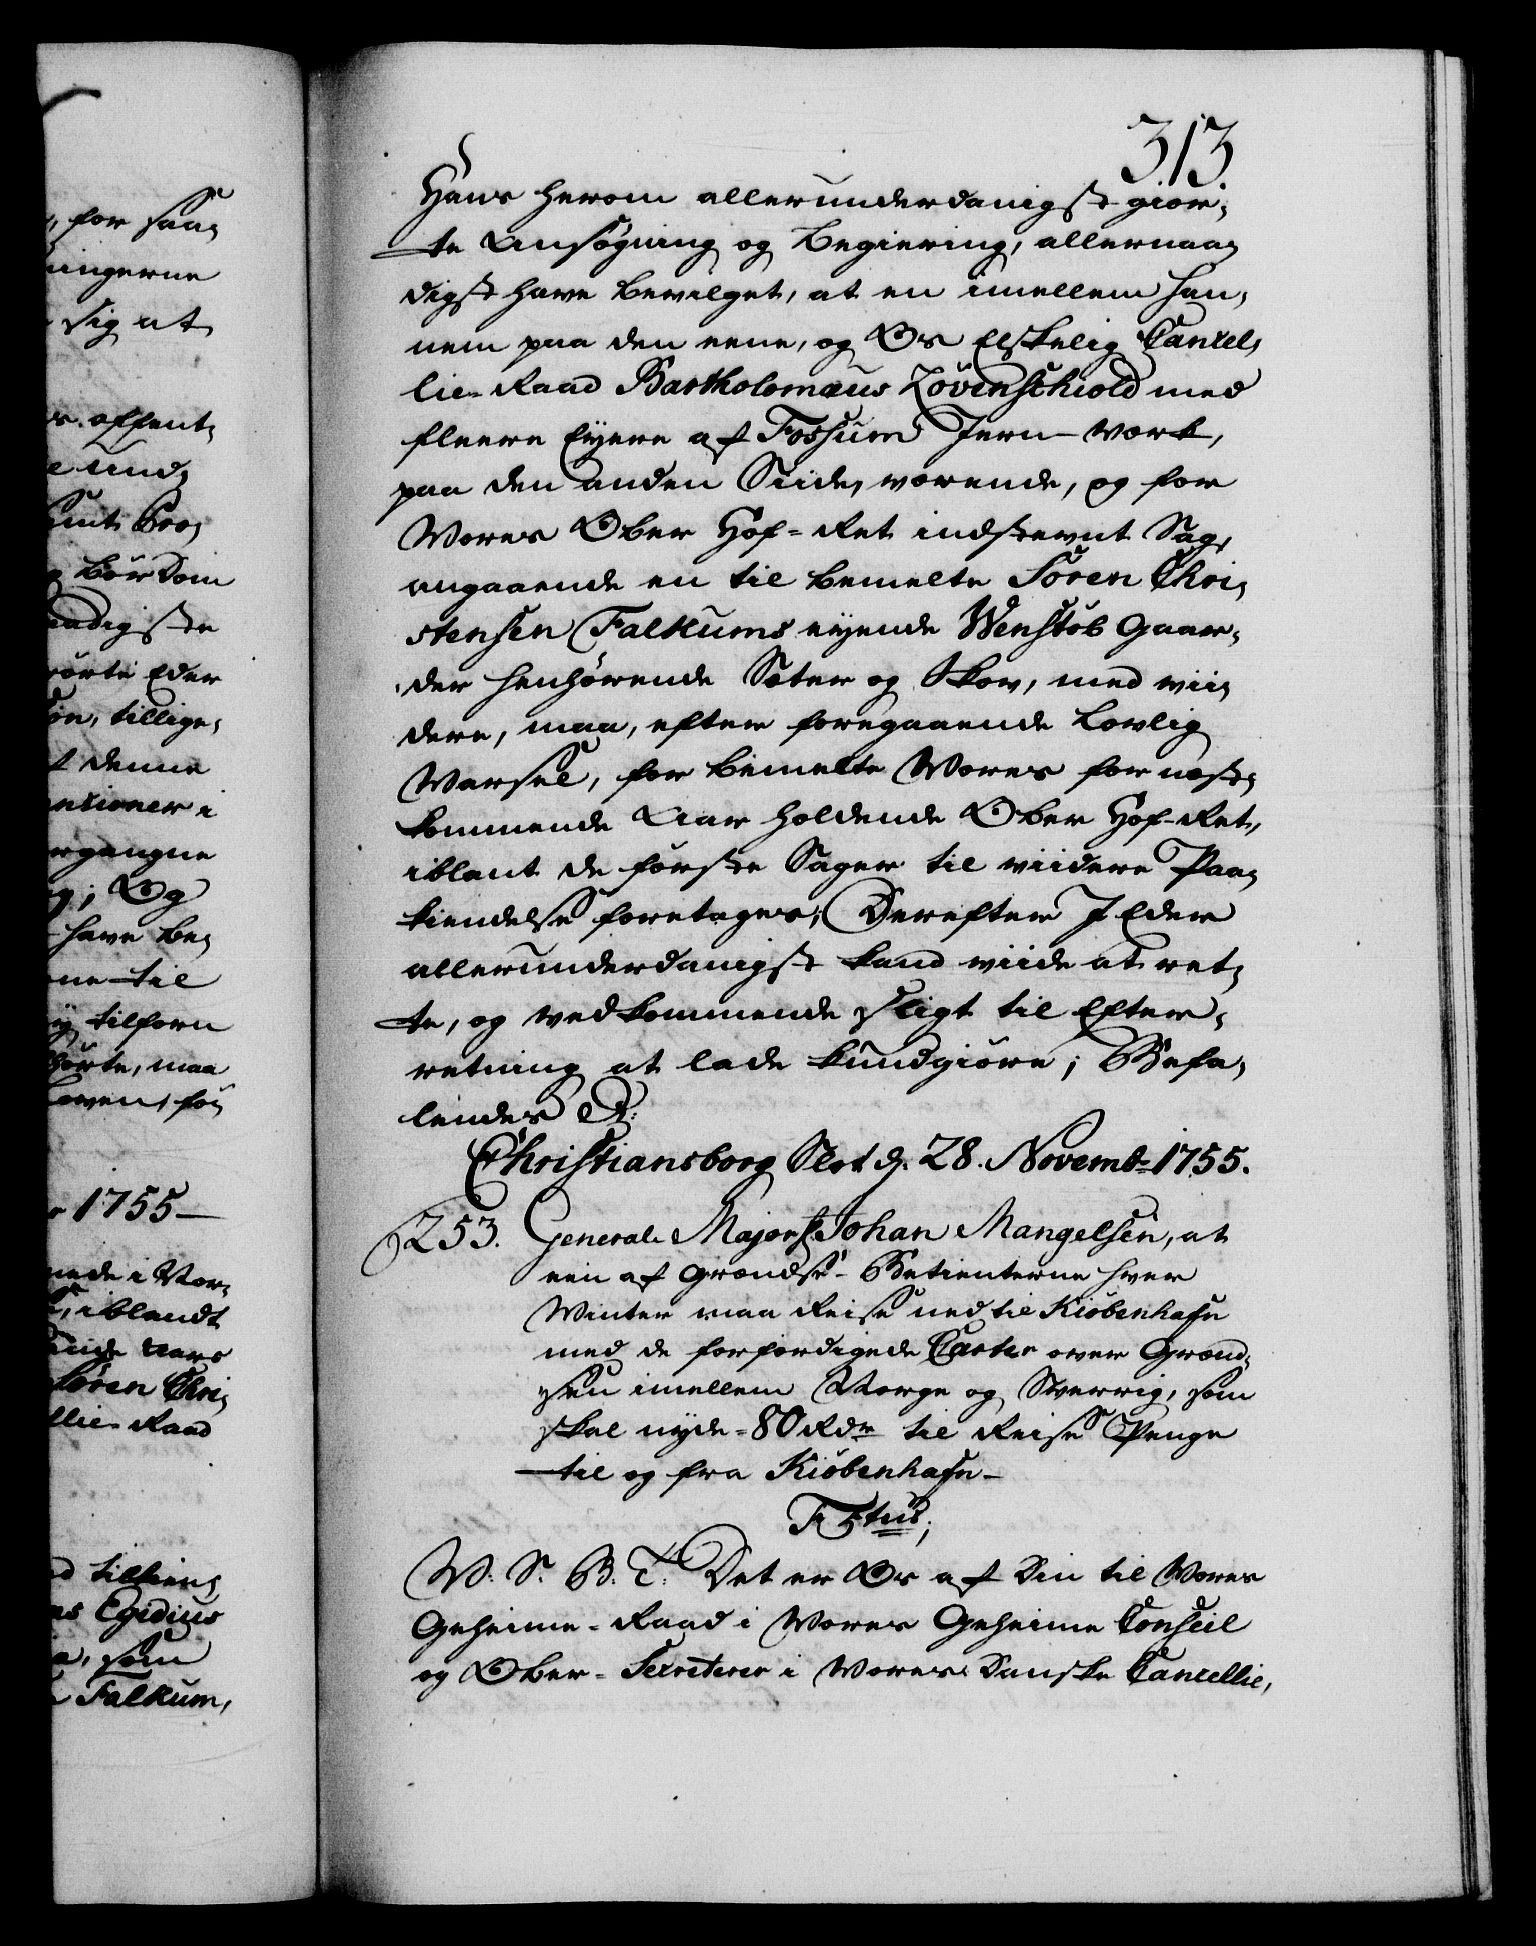 313.
Hans herom allerunderdanigst giør-
te Ansøgning og Begiering, allernaa-
digst have bevilget, at en imellem han-
nem paa den eene, og Os Elskelig Cancel-
lie-Raad Bartholomæus Løvenschiold med
fleere Eyere af Fossum Jern-Værk,
paa den anden Siide, værende, og for
Vores Ober Hof-Ret indstevnt Sag,
angaaende en til bemelte Søren Chri-
stensen Falkums eyende Wenstøb Gaar-
der henhørende Sæter og Skov, med vii-
dere, maa, efter foregaaende Lovlig
Varsel, for bemelte Vores for næst-
kommende Aar holdende Ober Hof-Ret,
iblant de første Sager til viidere Paa-
kiendelse foretages; Derefter I Eder
allerunderdanigst kand viide at ret-
te, og vedkommende sligt til Efter-
retning at lade kundgiøre; Befa-
lendes &:
Christiansborg Slot d. 28. Novemb: 1755.
253. General-Major Johan Mangelsen, at
een af Grændse-Betienterne hver
Winter maa Reise ned til Kiøbenhafn
med de forfærdigede Carter over Grænd-
sen imellem Norge og Sverrig, som
skal nyde 80 Rdr til Reise Penge
til og fra Kiøbenhafn-
F 5tus;
W: S: B: T: Det er Os af Din til Vores
Geheime-Raad i Vores Geheime Conseil
og Ober-Secreterer i Vores Danske Cancellie,
, for saa-
ningerne
sig at
offent-
und-
bør Dom
naadigste
Eder
tillige-
denne
i
; Og
have be-
til
tilforn
hørte, maa
Loven, for
1755
i Vor-
, iblandt
Aars
Søren Chri-
llie-Raad
Egidius
, som
Falkum,